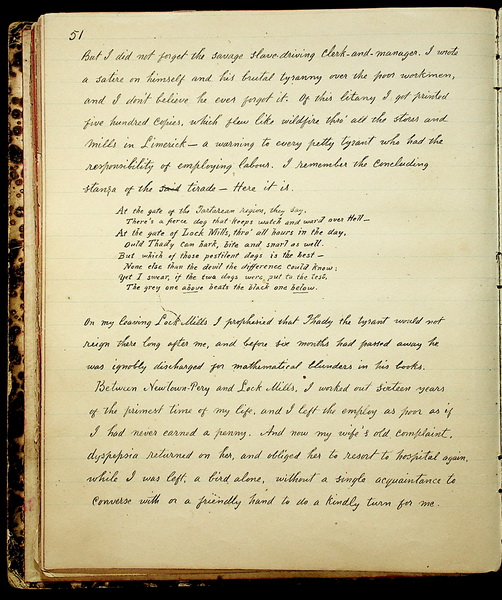 51
But I did not forget the savage slave-driving Clerk-and-manager. I wrote
a satire on himself and his brutal tyranny over the poor workmen,
and I don't believe he ever forgot it. Of this litany I got printed
five hundred copies, which flew like wildfire thro' all the stores and
mills in Limerick — a warning to every petty tyrant who had the
responsibility of employing labour. I remember the concluding
stanza of the said tirade — Here it is.
At the gate of the Tartarean region, they say,
There's a fierce dog that keeps watch and ward over Hell —
At the gate of Lock Mills, thro' all hours in the day,
Ould Thady can bark, bite and snarl as well.
But which of those pestilent dogs is the best —
None else than the devil the difference could know;
Yet I swear, if the two dogs were put to the test,
The grey one above beats the black one below.
On my leaving Lock Mills I prophesied that Thady the tyrant would not
reign there long after me, and before six months had passed away he
was ignobly discharged for mathematical blunders in his books.
Between Newtown-Pery and Lock Mills, I worked out sixteen years
of the primest time of my life, and I left the employ as poor as if
I had never earned a penny. And now my wife's old complaint,
dyspepsia returned on her, and obliged her to resort to hospital again,
while I was left, a bird alone, without a single acquaintance to
converse with or a friendly hand to do a kindly turn for me.